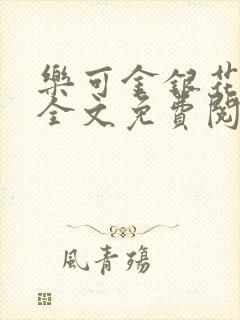 樂可金銀花
全文免費閱
風青殤